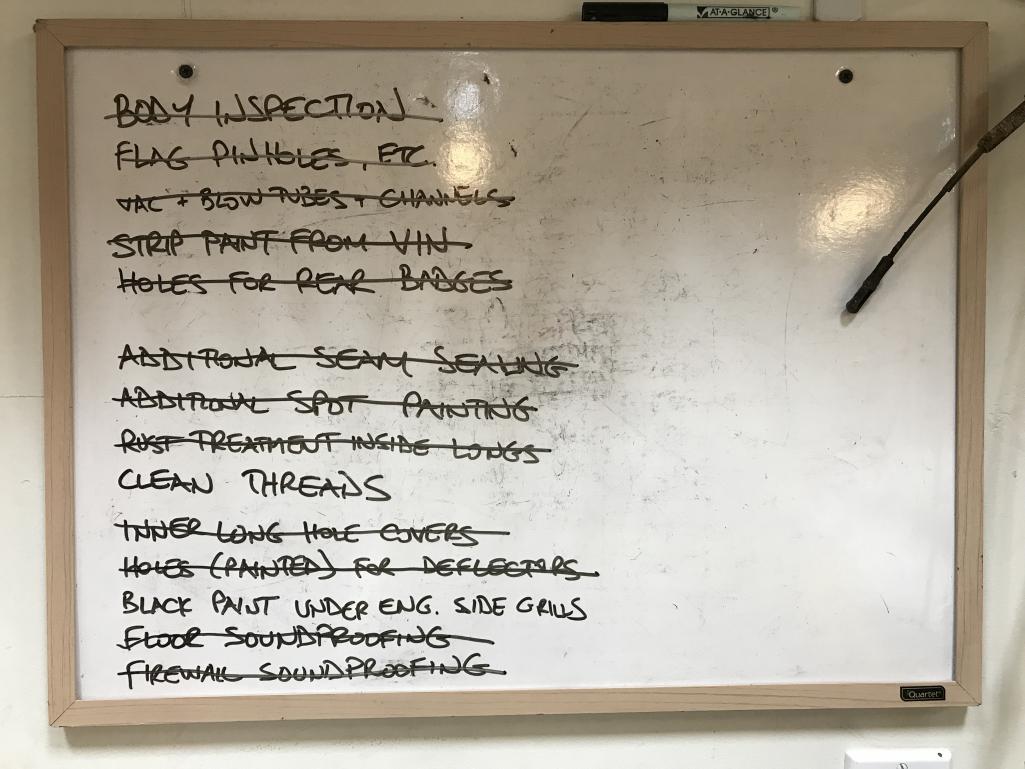 AT-A-GLANCE®
BODY INSPECTION
FLAG PINHOLES, ETC.
VAC + BLOW TUBES + CHANNELS
STRIP PAINT FROM VIN
HOLES FOR REAR BADGES
ADDITIONAL SEAM SEALING
ADDITIONAL SPOT PAINTING
RUST TREATMENT INSIDE LONGS
CLEAN THREADS
INNER LONG HOLE COVERS
HOLES (PAINTED) FOR DEFLECTORS
BLACK PAINT UNDER ENG. SIDE GRILLS
FLOOR SOUNDPROOFING
FIREWALL SOUNDPROOFING
Quartet